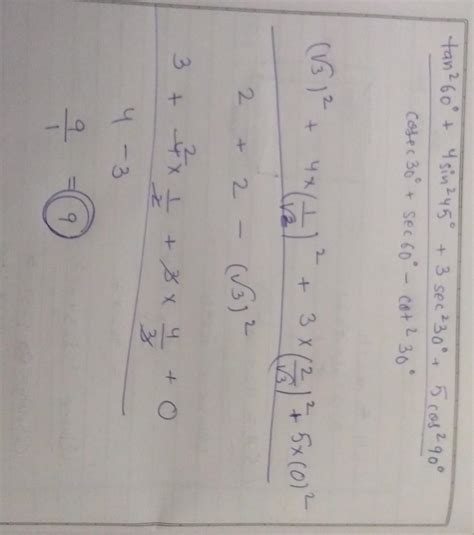 tan²60° + 4sin²45° + 3sec²30° + 5cos²90°
cosec30° + sec60° - cot²30°
(√3)² + 4×(1/√2)² + 3×(2/√3)² + 5×(0)²
2 + 2 - (√3)²
3 + 4 2 × 1/2 + 3 × 4/3 + 0
4 - 3
9/1 = 9